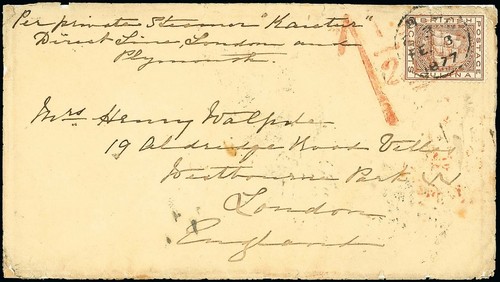 Per private Steamer "Kaieteur"
Direct Line, London and
Plymouth.
BRITISH
POSTAGE
CENTS
GUIANA
FE 3
1877
Mrs Henry Walpole
19 Aldridge Road Villas
Westbourne Park W
London
England